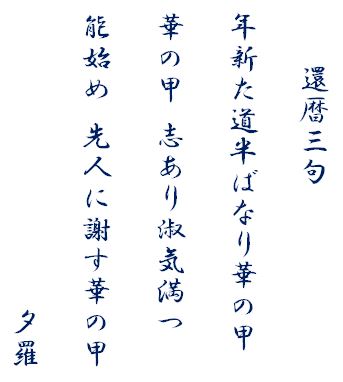 還暦三句
年新た道半ばなり華の甲
華の甲 志あり淑気満つ
能始め 先人に謝す華の甲
夕羅